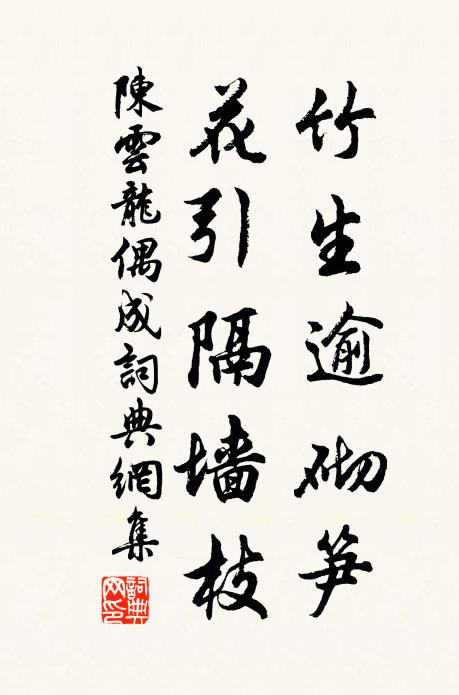 竹生逾砌笋
花引隔墙枝
陳雲龍偶成詞典網集
詞典网印